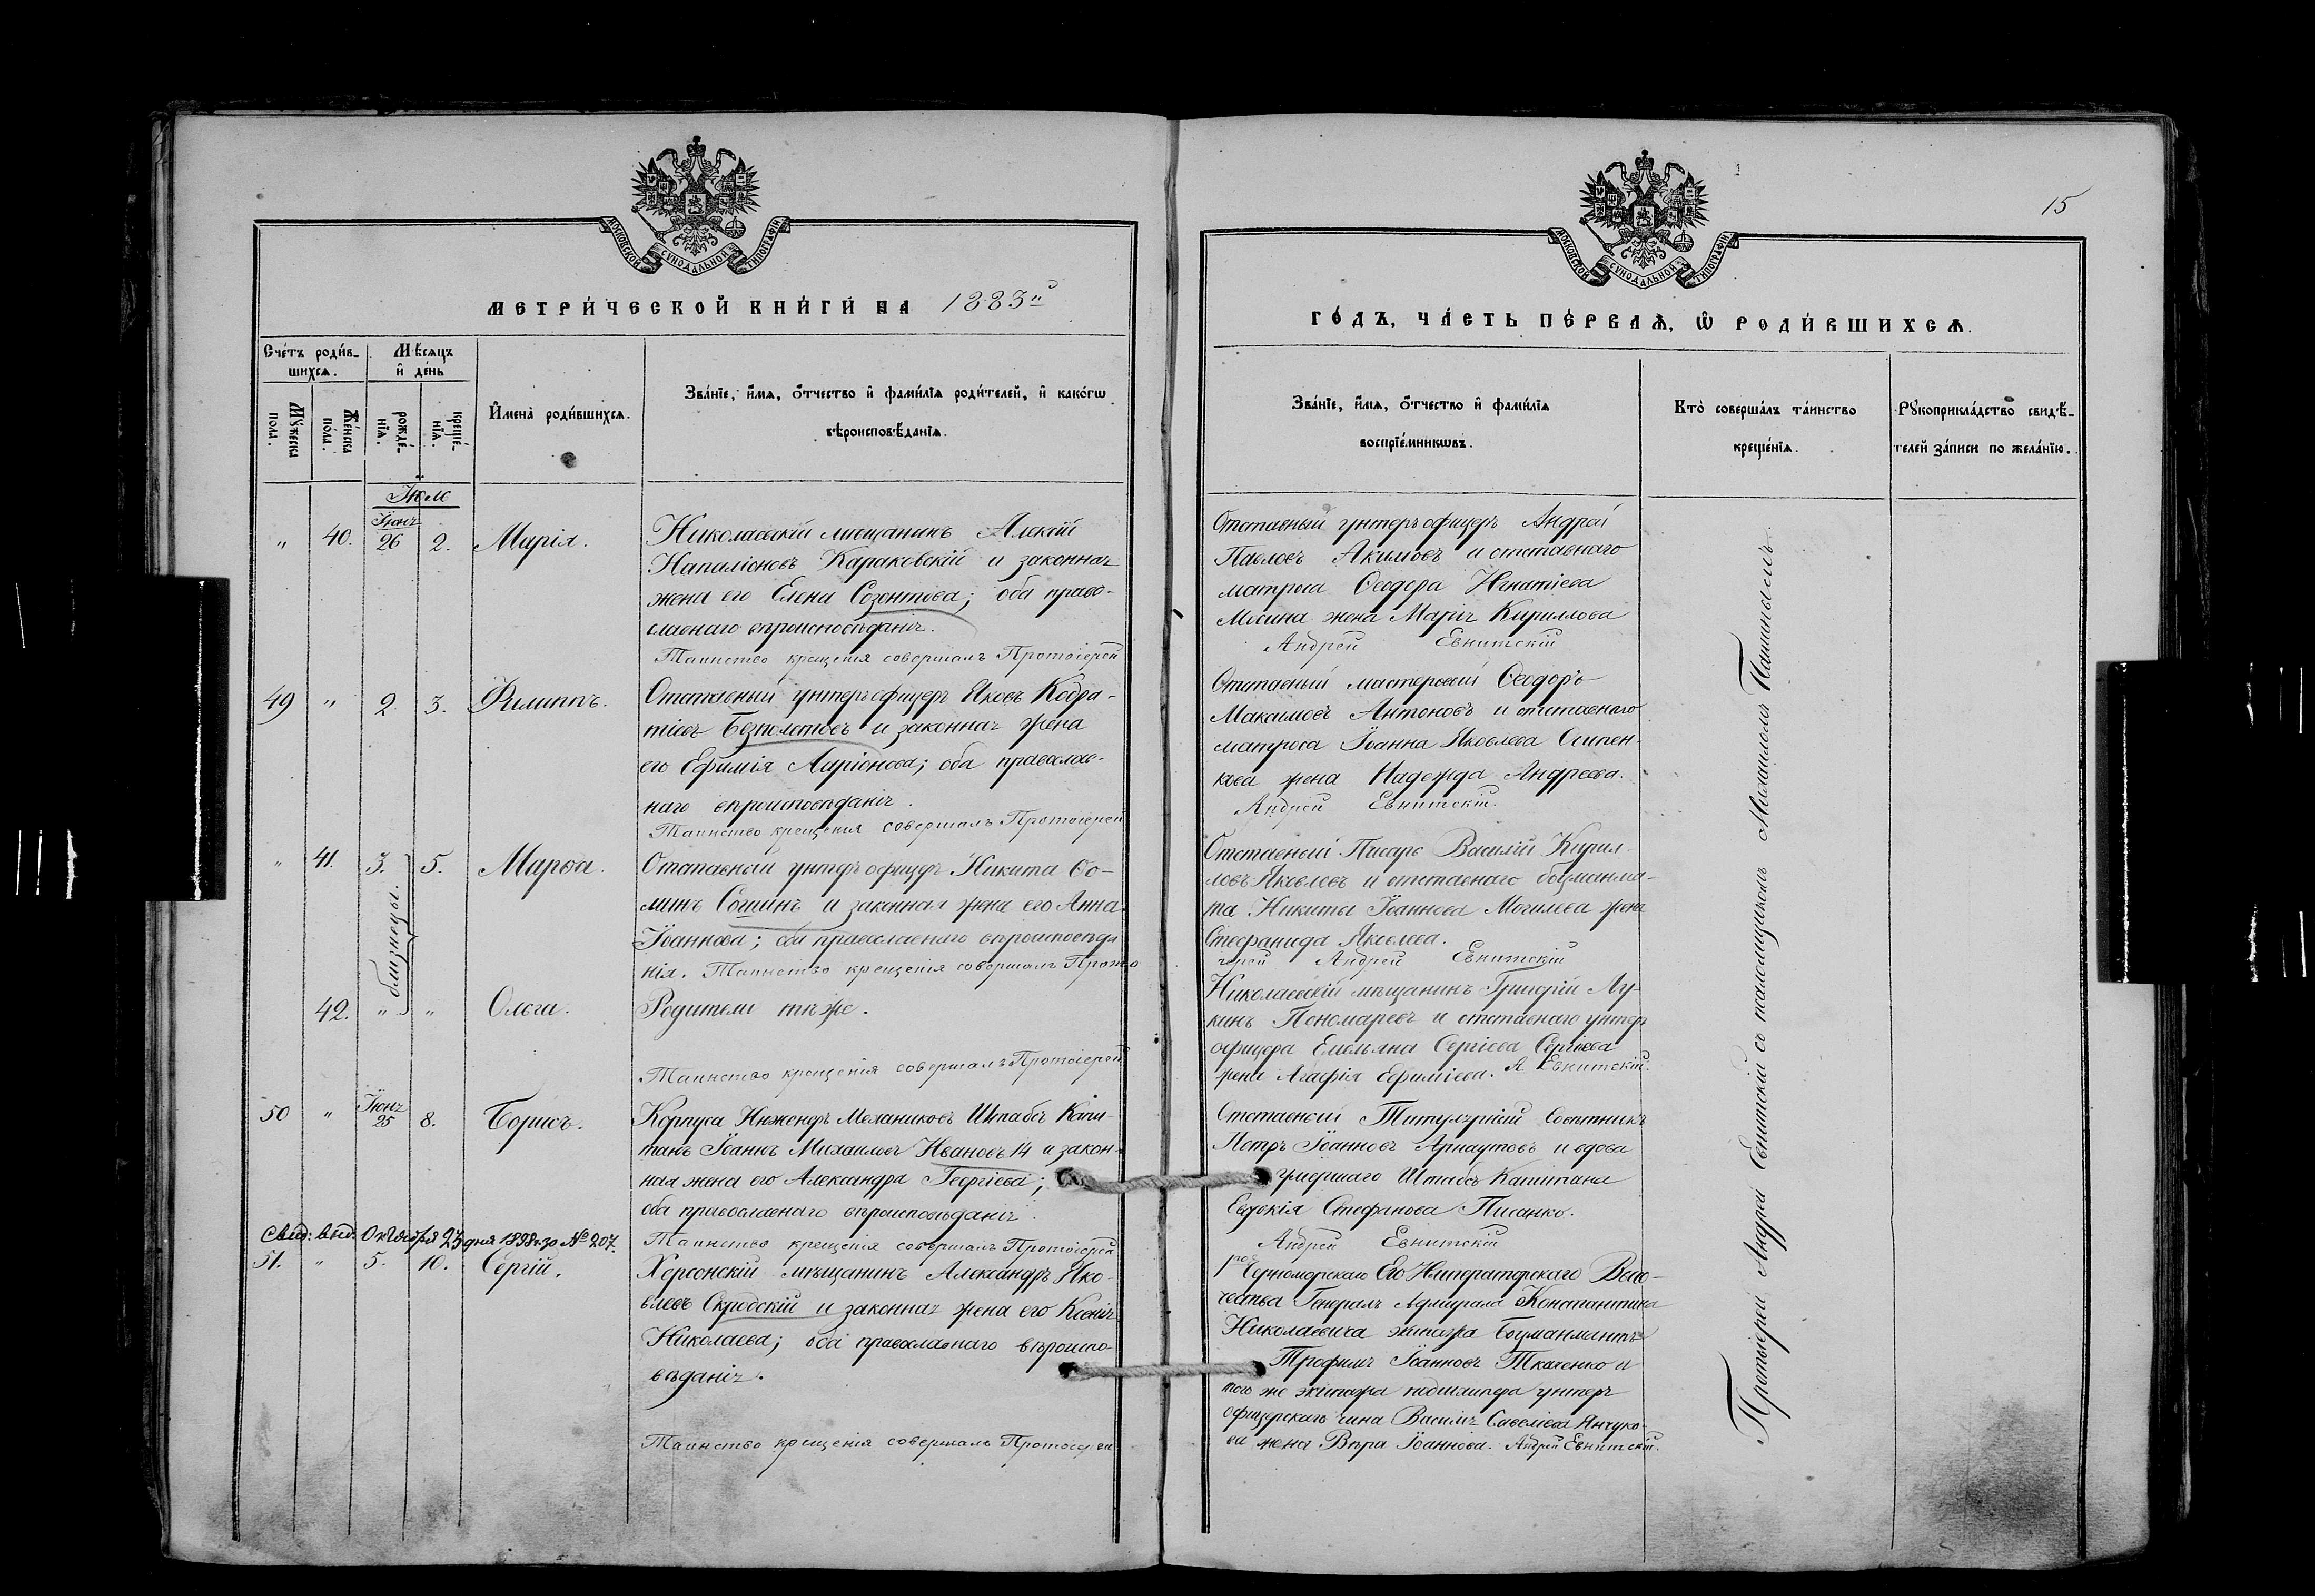 МОСКОВСКОЙ СѴНОДАЛЬНОЙ ТИПОГРАФІИ
МЕТРИ́ЧЕСКОЙ КНИ́ГИ НА 1883й
Сче́тъ роди́в-
шихсѧ.
Мѣ́сѧцъ
и҆ де́нь
Мꙋ́жеска
пола.
Же́нска
по́ла.
рожде́-
нїѧ.
креще́-
нїѧ.
И҆мена̀ роди́вшихсѧ.
Зва́нїе, и҆́мѧ, ѻ҆́тчество и҆ фами́лїѧ роди́телей, и҆ како́гѡ
вѣроисповѣ́данїѧ.
Іюль
„ 40. Іюня 26 2. Марія.
Николаевскій мѣщанинъ Алексій
Напаліоновъ Караковскій и законная
жена его Елена Созонтова; оба право-
славнаго вѣроисповѣданія.
Таинство крещенія совершалъ Протоіерей
49 „ 2. 3. Филиппъ.
Отставный унтеръ офицеръ Яковъ Кодра-
тіевъ Безполетовъ и законная жена
его Ефимія Ларіонова; оба православ-
наго вѣроисповѣданія.
Таинство крещенія совершалъ Протоіерей
„ 41. 3. 5. Марѳа.
близнецы.
Отставный унтеръ офицеръ Никита Ѳо-
минъ Сошинъ и законная жена его Анна
Іоаннова; оба православнаго вѣроисповѣда
нія. Таинство крещенія совершалъ Прото
42. „ „ Ольга.
Родители тѣже.
Таинство крещенія совершалъ Протоіерей
50 „ Іюня 25 8. Борисъ.
Корпуса Инженеръ Механиковъ Штабсъ Капи-
танъ Іоаннъ Михаиловъ Ивановъ 14 и закон-
ная жена его Александра Георгіева;
оба православнаго вѣроисповѣданія.
Таинство крещенія совершалъ Протоіерей
Свид: выд. Октября 23 дня 1898 г. за № 207.
51. „ 5. 10. Сергій.
Херсонскій мѣщанинъ Александръ Яко-
влевъ Скробскій и законная жена его Ксенія
Николаева; оба православнаго вѣроиспо-
вѣданія.
Таинство крещенія совершалъ Протоіерей
15
МОСКОВСКОЙ СѴНОДАЛЬНОЙ ТИПОГРАФІИ
ГО́ДЪ, ЧА́СТЬ ПЕ́РВАѦ, Ѡ҆ РОДИ́ВШИХСѦ.
Зва́нїе, и҆́мѧ, ѻ҆́тчество и҆ фами́лїѧ
воспрїе́мникѡвъ.
Кто̀ соверша́лъ та́инство
креще́нїѧ.
Рꙋкоприкла́дство свидѣ́-
телей за́писи по жела́нїю.
Отставный унтеръ офицеръ Андрей
Павловъ Акимовъ и отставнаго
матроса Ѳеодора Игнатіева
Мосина жена Марія Кириллова
Андрей Евнитскій
Отставный мастеровый Ѳеодоръ
Максимовъ Антоновъ и отставнаго
матроса Іоанна Яковлева Осипен-
кова жена Надежда Андреева.
Андрей Евнитскій.
Отставный Писарь Василій Кирил-
ловъ Яковлевъ и отставнаго боцманма-
та Никиты Іоаннова Могилева жена
Стефанида Яковлева.
іерей Андрей Евнитскій
Николаевскій мѣщанинъ Григорій Лу-
кинъ Пономаревъ и отставнаго унтеръ
офицера Емельяна Сергіева Сергіева
жена Агафія Ефиміева. А Евнитскій.
Отставный Титулярный Совѣтникъ
Петръ Іоанновъ Арнаутовъ и вдова
умершаго Штабсъ Капитана
Евдокія Стефанова Писанко.
Андрей Евнитскій
1го Черноморскаго Его Императорскаго Высо-
чества Генералъ Адмирала Константина
Николаевича экипажа Боцманматъ
Трофимъ Іоанновъ Ткаченко и
того же экипажа подшкипера унтеръ
офицерскаго чина Василія Савеліева Янчуко-
ва жена Вѣра Іоаннова. Андрей Евнитскій.
Протоіерей Андрей Евнитскій съ псаломщикомъ Михаиломъ Пашинымъ.